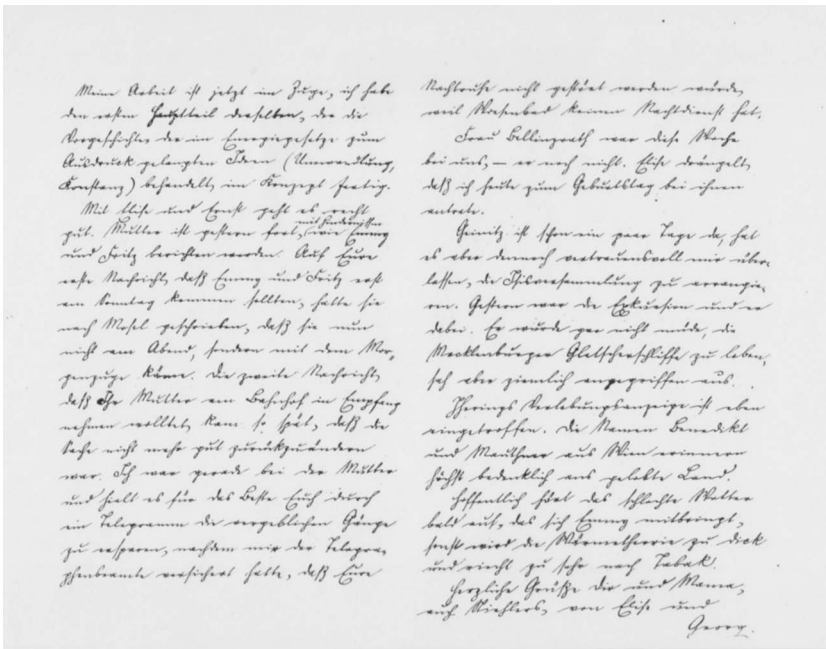 Meine Arbeit ist jetzt im Zuge, ich habe
den ersten Hauptteil derselben, der die
Vorgeschichte der im Energiegesetze zum
Ausdruck gelangten Ideen (Umwandlung,
Konstanz) behandelt, im Konzept fertig.
Mit Elise und Ernst geht es recht
gut. Mutter ist gestern fort, mit Hindernissen wie Emmy
und Fritz berichten werden. Auf Eure
erste Nachricht, daß Emmy und Fritz erst
am Sonntag kommen sollten, hatte sie
nach Mosel geschrieben, daß sie nun
nicht am Abend, sondern mit dem Mor-
genzuge käme. Die zweite Nachricht,
daß Ihr Mutter am Bahnhof in Empfang
nehmen wolltet, kam so spät, daß die
Sache nicht mehr gut zurückzuändern
war. Ich war gerade bei der Mutter
und hielt es für das Beste Euch durch
ein Telegramm die vergeblichen Gänge
zu ersparen, nachdem mir der Telegra-
phenbeamte versichert hatte, daß Eure
Nachtruhe nicht gestört werden würde,
weil keinen Nachtdienst hat.
Frau war diese Woche
bei uns, – er noch nicht. Elise drängelt,
daß ich heute zum Geburtstag bei ihnen
antrete.
Geinitz ist schon ein paar Tage da, hat
es aber dennoch vertrauensvoll mir über-
lassen, die Isisversammlung zu arrangie-
ren. Gestern war die Exkursion und er
dabei. Er wurde gar nicht müde, die
Mecklenburger Gletscherschliffe zu loben,
sah aber ziemlich angegriffen aus.
Iherings Verlobungsanzeige ist eben
eingetroffen. Die Namen Benedikt
und Mauthner aus Wien erinnern
höchst bedenklich ans gelobte Land.
Hoffentlich hört das schlechte Wetter
bald auf, das sich Emmy mitbringt,
sonst wird die Wärmetheorie zu dick
und riecht zu sehr nach Tabak.
Herzliche Grüße Dir und Mama,
auch von Elise und
Georg.